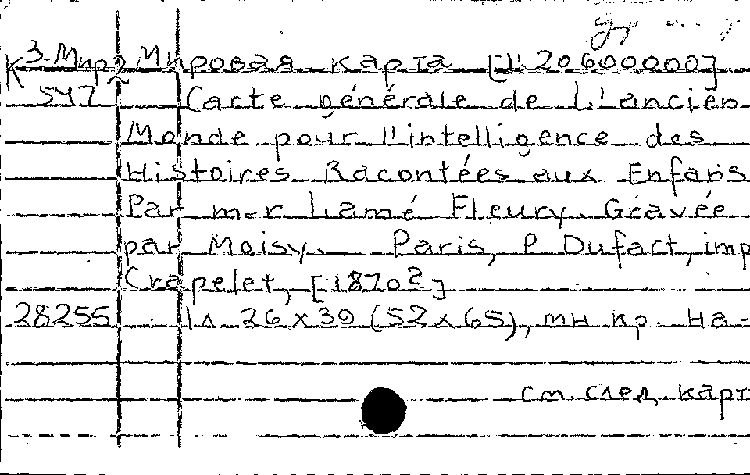 К 3-Мир2 Мировая карта [1:20600000]
547 Carte générale de L'ancien
Monde pour l'intelligence des
Histoires Racontées aux Enfans
Par m-r Lamé Fleury. Gravée
par Moisy. Paris, P Dufart, imp
Crapelet, [1820?]
28255 1л 26x39 (52x65), тн кр На-
см. след. карт